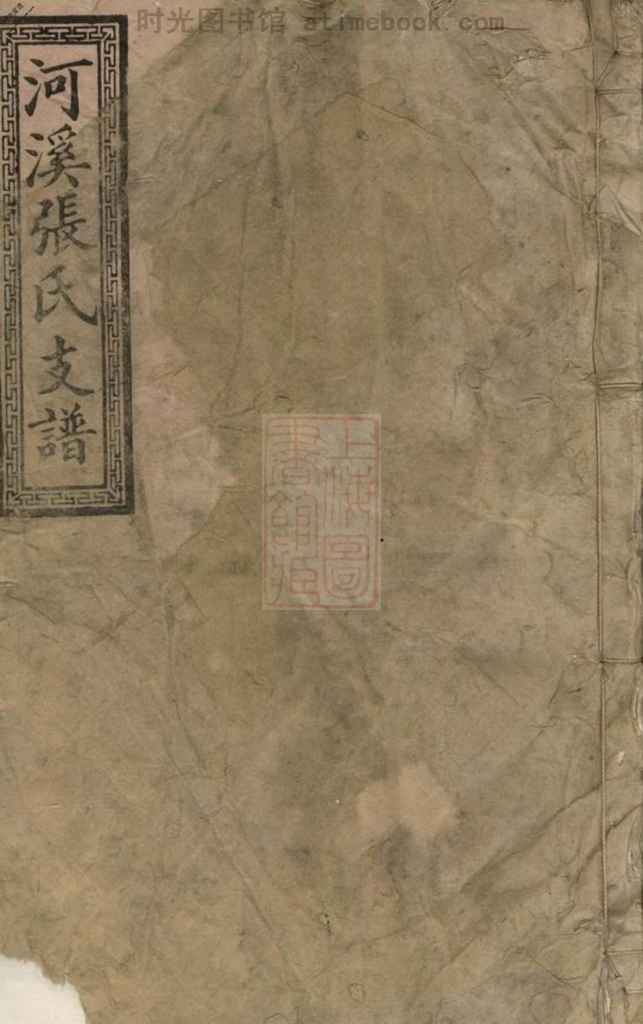 时光图书馆 atimebook.com
河溪張氏支譜
上海圖
書館藏